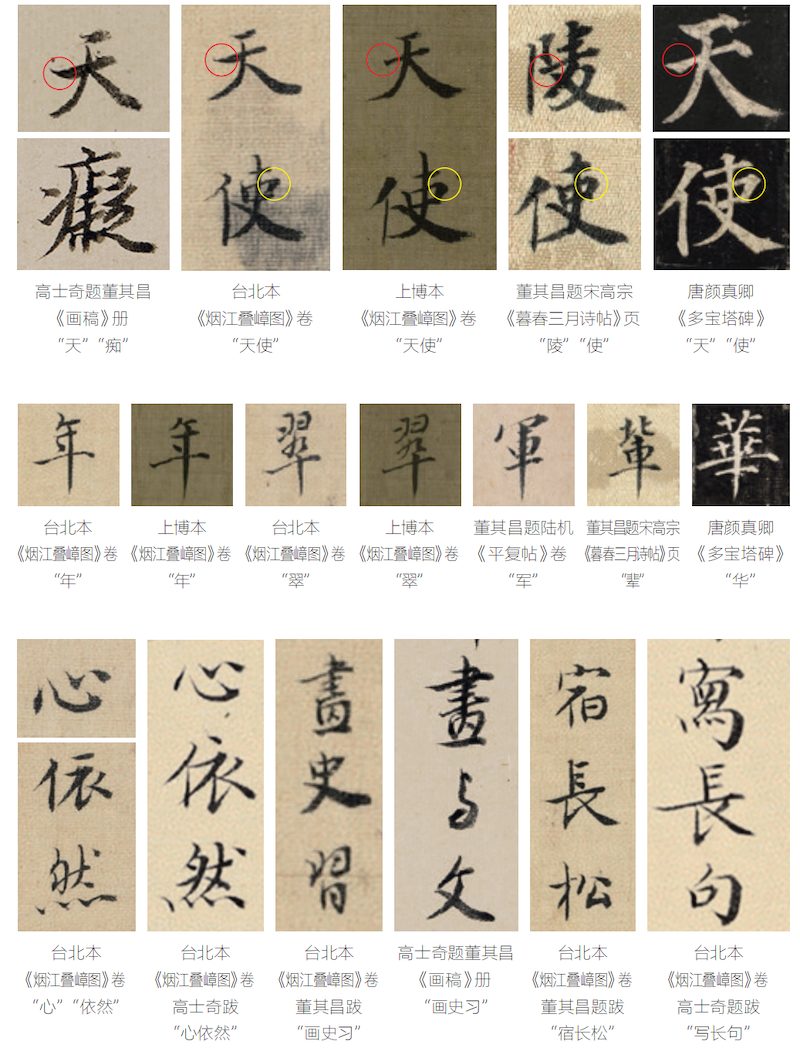 天
癡
天
使
天
使
陵
使
天
使
高士奇题董其昌
《画稿》册
“天”“痴”
台北本
《烟江叠嶂图》卷
“天使”
上博本
《烟江叠嶂图》卷
“天使”
董其昌题宋高宗
《暮春三月诗帖》页
“陵”“使”
唐颜真卿
《多宝塔碑》
“天”“使”
年
年
翠
翠
軍
輩
華
台北本
《烟江叠嶂图》卷
“年”
上博本
《烟江叠嶂图》卷
“年”
台北本
《烟江叠嶂图》卷
“翠”
上博本
《烟江叠嶂图》卷
“翠”
董其昌题陆机
《平复帖》卷
“军”
董其昌题宋高宗
《暮春三月诗帖》页
“辈”
唐颜真卿
《多宝塔碑》
“华”
心
依然
心依然
畫史習
畫与文
宿長松
寫長句
台北本
《烟江叠嶂图》卷
“心”“依然”
台北本
《烟江叠嶂图》卷
高士奇跋
“心依然”
台北本
《烟江叠嶂图》卷
董其昌跋
“画史习”
高士奇题董其昌
《画稿》册
“画史习”
台北本
《烟江叠嶂图》卷
董其昌题跋
“宿长松”
台北本
《烟江叠嶂图》卷
高士奇题跋
“写长句”